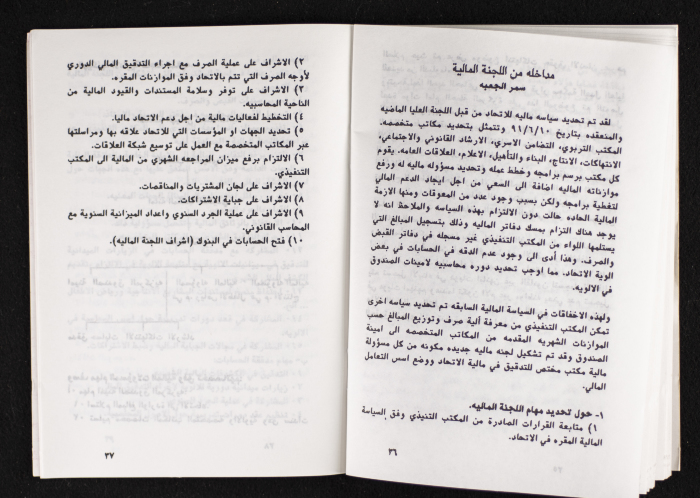 مداخله من اللجنة المالية
سمر الجعبه
لقد تم تحديد سياسه ماليه للاتحاد من قبل اللجنة العليا الماضيه
والمنعقده بتاريخ ٩١/٦/١٠ وتتمثل بتحديد مكاتب متخصصه.
المكتب التربوي، التضامن الاسري، الارشاد القانوني والاجتماعي،
الانتهاكات، الانتاج، البناء والتأهيل، الاعلام، العلاقات العامه. يقوم
كل مكتب برسم برامجه وخطط عمله وتحديد مسؤوله ماليه له ورفع
موازناته الماليه اضافة الى السعي من اجل ايجاد الدعم المالي
لتغطية برامجه ولكن بسبب وجود عدد من المعوقات ومنها الازمة
المالية الحاده حالت دون الالتزام بهذه السياسه والملاحظ انه لا
يوجد هناك التزام بمسك دفاتر الماليه وذلك بتسجيل المبالغ التي
يستلمها اللواء من المكتب التنفيذي غير مسجله في دفاتر القبض
والصرف. وهذا أدى الى وجود عدم الدقه في الحسابات في بعض
الوية الاتحاد. مما اوجب تحديد دوره محاسبيه لامينات الصندوق
في الالويه.
ولهذه الاخفاقات في السياسة المالية السابقه تم تحديد سياسه اخرى
تمكن المكتب التنفيذي من معرفة آلية صرف وتوزيع المبالغ حسب
الموازنات الشهريه المقدمه من المكاتب المتخصصه الى امينة
الصندوق وقد تم تشكيل لجنه ماليه جديده مكونه من كل مسؤولة
مالية مكتب مختص للتدقيق في مالية الاتحاد ووضع اسس التعامل
المالي.
١- حول تحديد مهام اللجنه الماليه.
١) متابعة القرارات الصادرة من المكتب التنيذي وفق السياسة
المالية المقره في الاتحاد.
٣٦
٢) الاشراف على عملية الصرف مع اجراء التدقيق المالي الدوري
لأوجه الصرف التي تتم بالاتحاد وفق الموازنات المقره.
٣) الاشراف على توفر وسلامة المستندات والقيود المالية من
الناحية المحاسبيه.
٤) التخطيط لفعاليات مالية من اجل دعم الاتحاد ماليا.
٥) تحديد الجهات او المؤسسات التي للاتحاد علاقه بها ومراسلتها
عبر المكاتب المتخصصة مع العمل على توسيع شبكة العلاقات.
٦) الالتزام برفع ميزان المراجعه الشهري من مالية الى المكتب
التنفيذي.
٧) الاشراف على لجان المشتريات والمناقصات.
٨) الاشراف على جباية الاشتراكات.
٩) الاشراف على عملية الجرد السنوي واعداد الميزانية السنوية مع
المحاسب القانوني.
١٠) فتح الحسابات في البنوك (اشراف اللجنة الماليه).
٣٧